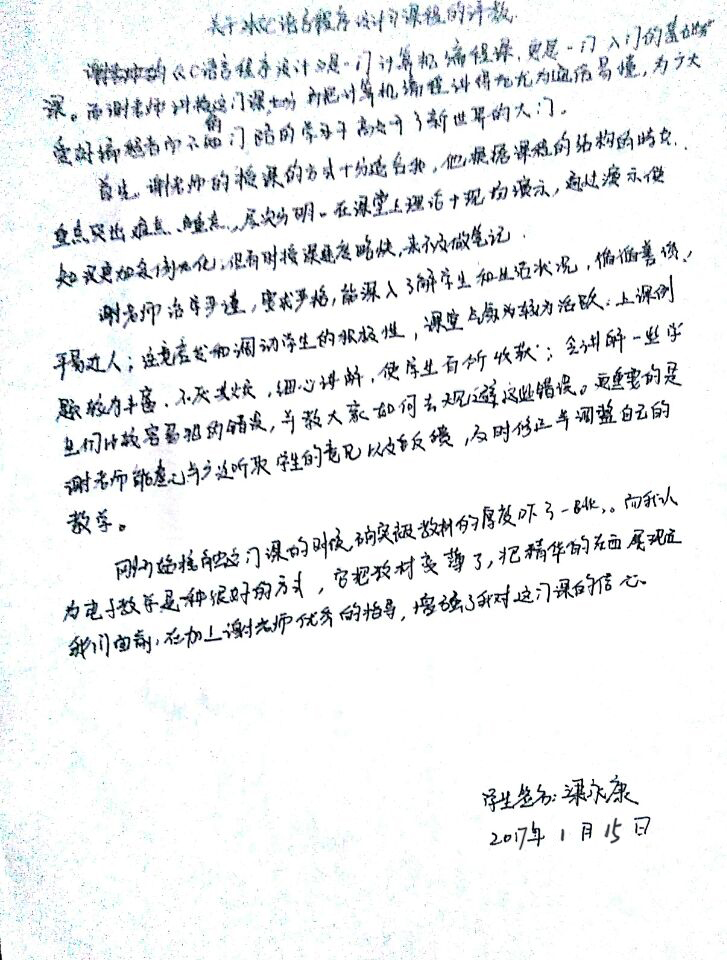 关于《C语言程序设计》课程的评教
的《C语言程序设计》是一门计算机编程课，更是一门入门的基础
课。而谢老师讲授这门课十分 把计算机编程讲得尤为通俗易懂，为广大
爱好 而不 门路的学子 开了新世界的大门。
首先，谢老师的授课的方式十分适合我，他根据课程的结构的特点，
重点突出难点、重点，层次分明。在课堂上理论+现场演示，通过演示使
知识更加条例化，但有时授课速度略快，来不及做笔记。
谢老师治学严谨，要求严格，能深入了解学生和生活状况，循循善诱，
平易近人；注意启发和调动学生的积极性，课堂气氛较为活跃；上课例
题较为丰富、不厌其烦，细心讲解，使学生有所收获；会讲解一些学
生们比较容易犯的错误，并教大家如何去规避这些错误。更重要的是
谢老师能虚心与 听取学生的意见以及反馈，及时修正与调整自己的
教学。
刚开始接触这门课的时候，确实被教材的厚度吓了一跳。而我认
为电子教学是种很好的方式，它把教材变薄了，把精华的东西展现在
我们面前，在加上谢老师优秀的指导，增强了我对这门课的信心。
学生签名：梁 康
2017年1月15日